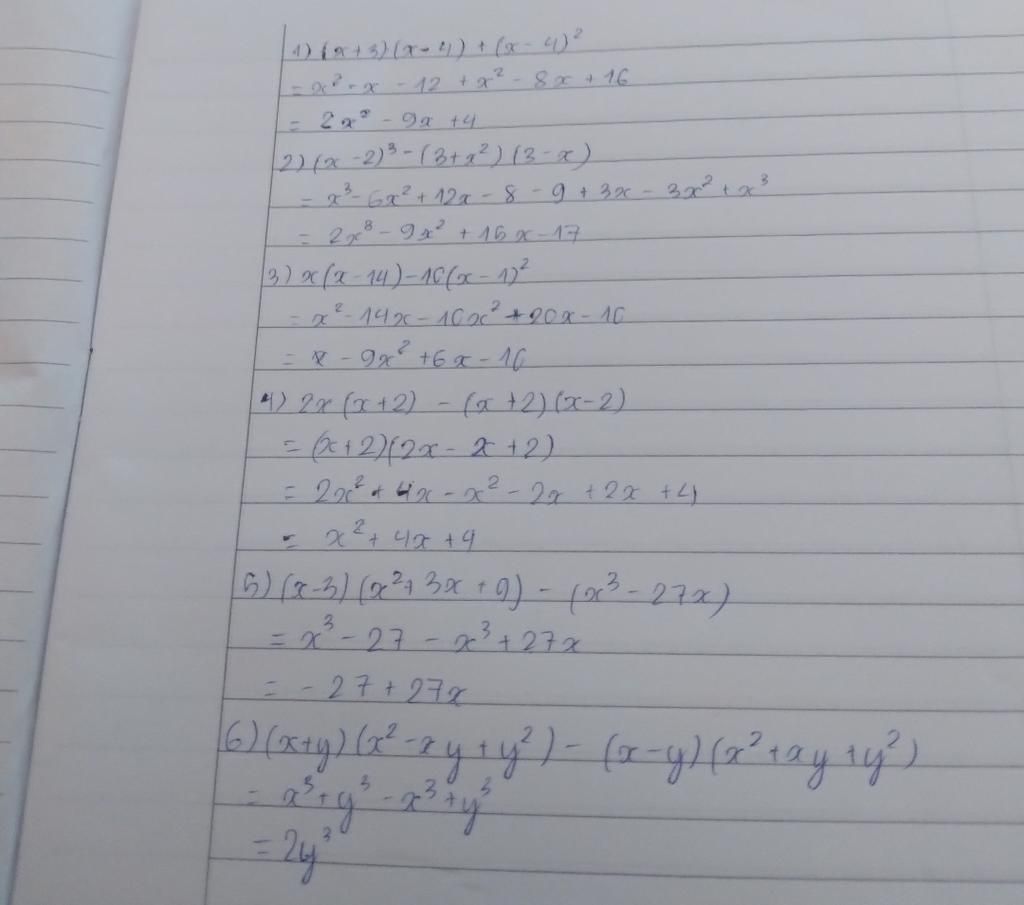 1) (x+3)(x-4) + (x-4)²
= x² - x - 12 + x² - 8x + 16
= 2x² - 9x + 4
2) (x-2)³ - (3+x²)(3-x)
= x³ - 6x² + 12x - 8 - 9 + 3x - 3x² + x³
= 2x³ - 9x² + 15x - 17
3) x(x-14) - 10(x-1)²
= x² - 14x - 10x² + 20x - 10
= x - 9x² + 6x - 10
4) 2x(x+2) - (x+2)(x-2)
= (x+2)(2x - x + 2)
= 2x² + 4x - x² - 2x + 2x + 4
= x² + 4x + 4
5) (x-3)(x² + 3x + 9) - (x³ - 27x)
= x³ - 27 - x³ + 27x
= - 27 + 27x
6) (x+y)(x² - xy + y²) - (x-y)(x² + xy + y²)
= x³ + y³ - x³ + y³
= 2y³